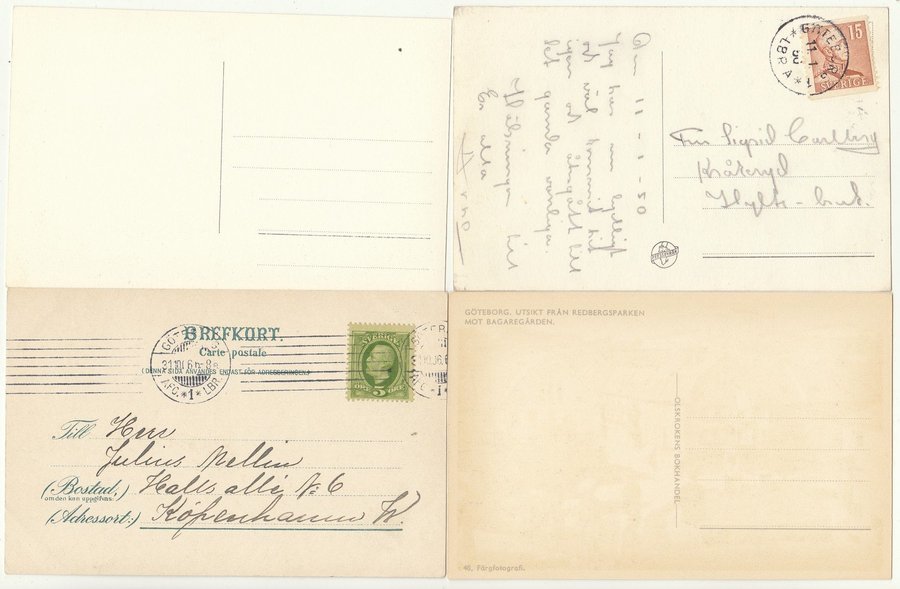 Den 11 - 1 - 50
Jag har nu lyckligt
och väl kommit hit
igen och återgått till
det gamla vanliga.
Hälsningar till
Er alla
Arno
GÖTEBORG 1
11 1
LBR A
15
SVERIGE
Frk Sigrid Carlberg
Kråkeryd
Hylte-bruk.
BREFKORT.
Carte postale
(DENNA SIDA ANVÄNDES ENDAST FÖR ADRESSERINGEN.)
GÖTEBORG
31.10.06
*1* LBR
SVERIGE
5
Till Herr
Julius Mellin
(Bostad,) Halls allé No 6
om den kan uppgifvas:
(Adressort:) Köpenhamn W.
GÖTEBORG. UTSIKT FRÅN REDBERGSPARKEN
MOT BAGAREGÅRDEN.
OLSKROKENS BOKHANDEL
46, Färgfotografi.